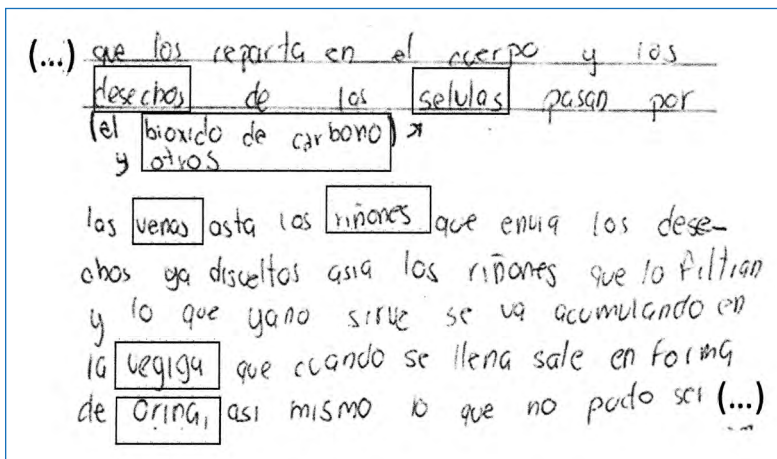 (...) que los reparta en el cuerpo y los
desechos de las selulas pasan por
(el bioxido de carbono)
y otros
las venas asta los riñones que envia los dese-
chos ya disueltos asia los riñones que lo filtran
y lo que yano sirve se va acumulando en
la vegiga que cuando se llena sale en forma
de orina, asi mismo lo que no pudo ser (...)